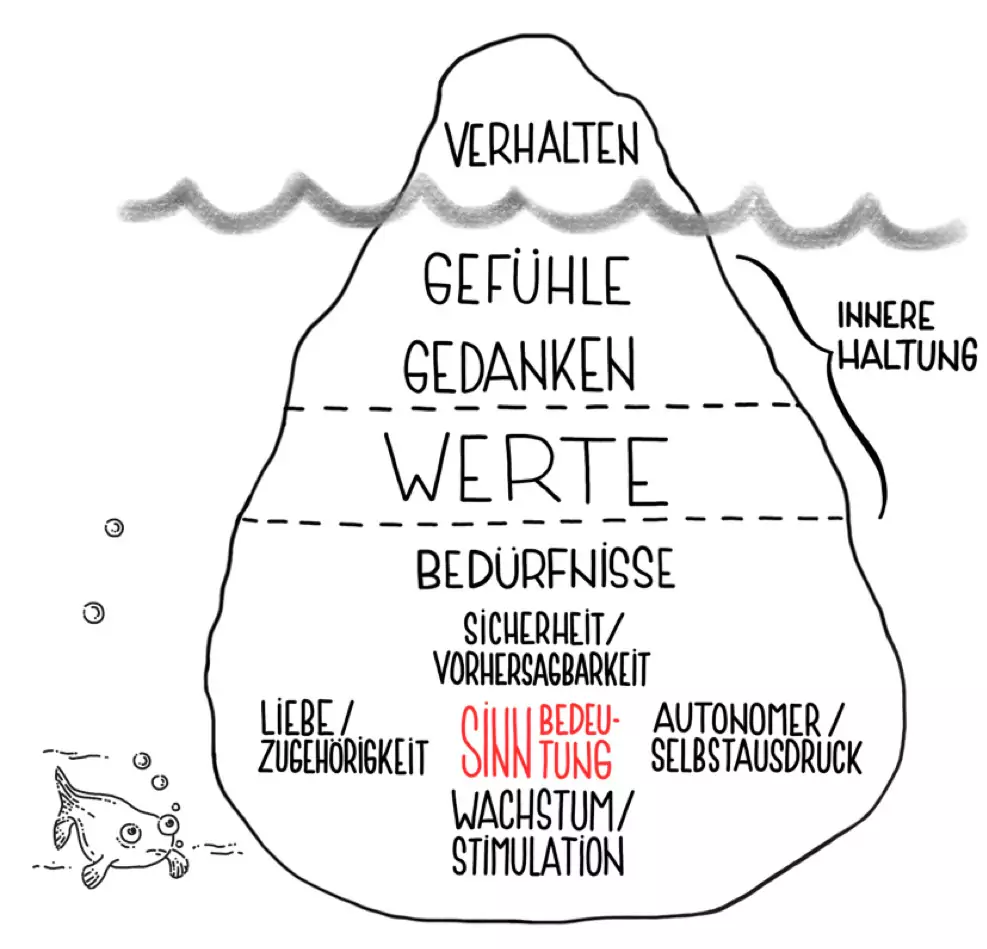 VERHALTEN
GEFÜHLE
GEDANKEN
INNERE
HALTUNG
WERTE
BEDÜRFNISSE
SICHERHEIT/
VORHERSAGBARKEIT
LIEBE/
ZUGEHÖRIGKEIT
SINN BEDEU-
TUNG
AUTONOMER/
SELBSTAUSDRUCK
WACHSTUM/
STIMULATION